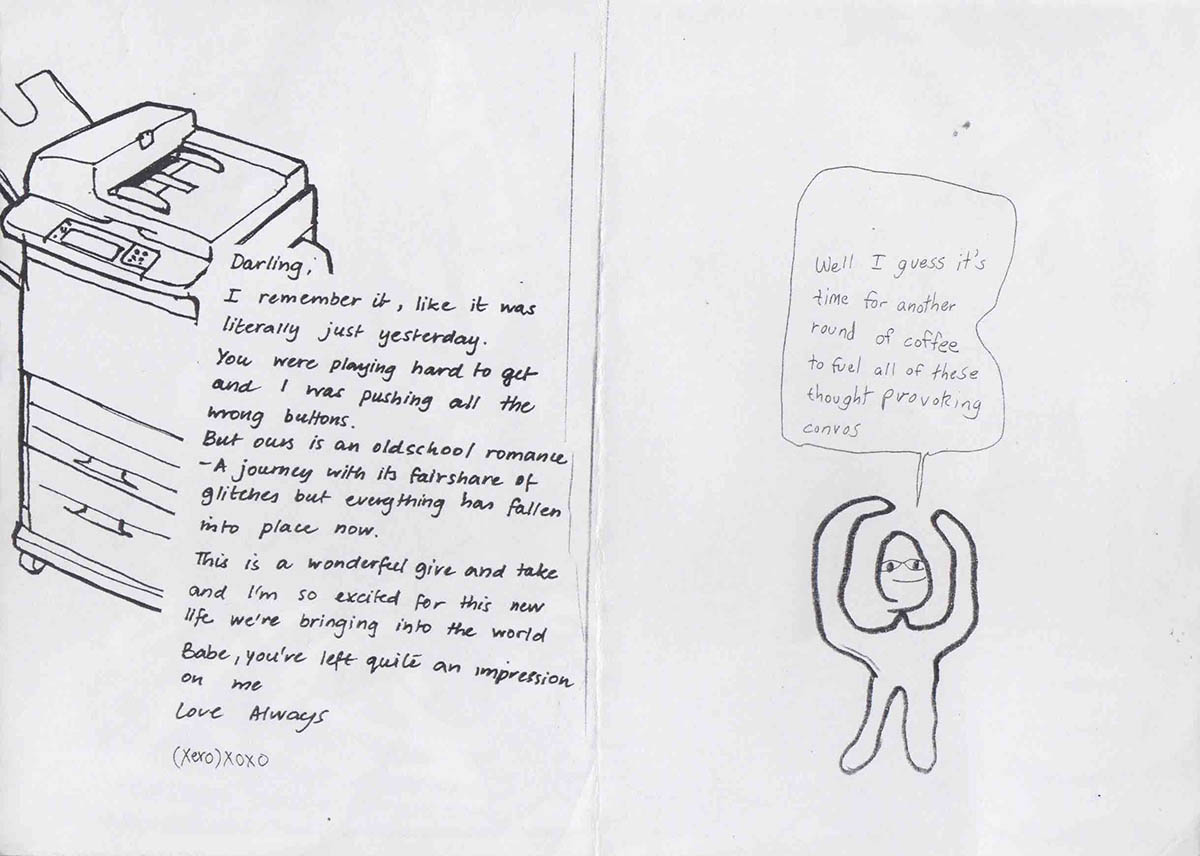 Darling,
I remember it, like it was
literally just yesterday.
You were playing hard to get
and I was pushing all the
wrong buttons.
But ours is an oldschool romance
- A journey with its fairshare of
glitches but everything has fallen
into place now.
This is a wonderful give and take
and I'm so excited for this new
life we're bringing into the world
Babe, you've left quite an impression
on me
Love Always
(Xero)XOXO
Well I guess it's
time for another
round of coffee
to fuel all of these
thought provoking
convos